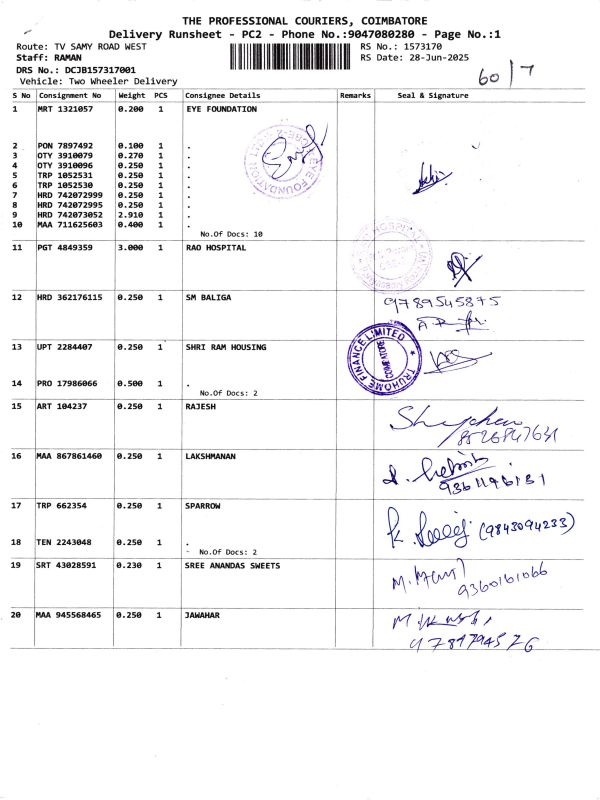 THE PROFESSIONAL COURIERS, COIMBATORE
Delivery Runsheet - PC2 - Phone No.:9047080280 - Page No.:1
Route: TV SAMY ROAD WEST RS No.: 1573170
Staff: RAMAN RS Date: 28-Jun-2025
DRS No.: DCJB157317001
Vehicle: Two Wheeler Delivery
60/7
S No Consignment No Weight PCS Consignee Details Remarks Seal & Signature
1 MRT 1321057 0.200 1 EYE FOUNDATION
2 PON 7897492 0.100 1 .
3 OTY 3910079 0.270 1 .
4 OTY 3910096 0.250 1 .
5 TRP 1052531 0.250 1 .
6 TRP 1052530 0.250 1 .
7 HRD 742072999 0.250 1 .
8 HRD 742072995 0.250 1 .
9 HRD 742073052 2.910 1 .
10 MAA 711625603 0.400 1 .
No.Of Docs: 10
11 PGT 4849359 3.000 1 RAO HOSPITAL
12 HRD 362176115 0.250 1 SM BALIGA 9789545875
13 UPT 2284407 0.250 1 SHRI RAM HOUSING
TRUHOME FINANCE LIMITED
COIMBATORE
14 PRO 17986066 0.500 1 .
No.Of Docs: 2
15 ART 104237 0.250 1 RAJESH
8526847631
16 MAA 867861460 0.250 1 LAKSHMANAN
9361196131
17 TRP 662354 0.250 1 SPARROW
(9843094233)
18 TEN 2243048 0.250 1 .
- No.Of Docs: 2
19 SRT 43028591 0.230 1 SREE ANANDAS SWEETS
9360161066
20 MAA 945568465 0.250 1 JAWAHAR
9789794576